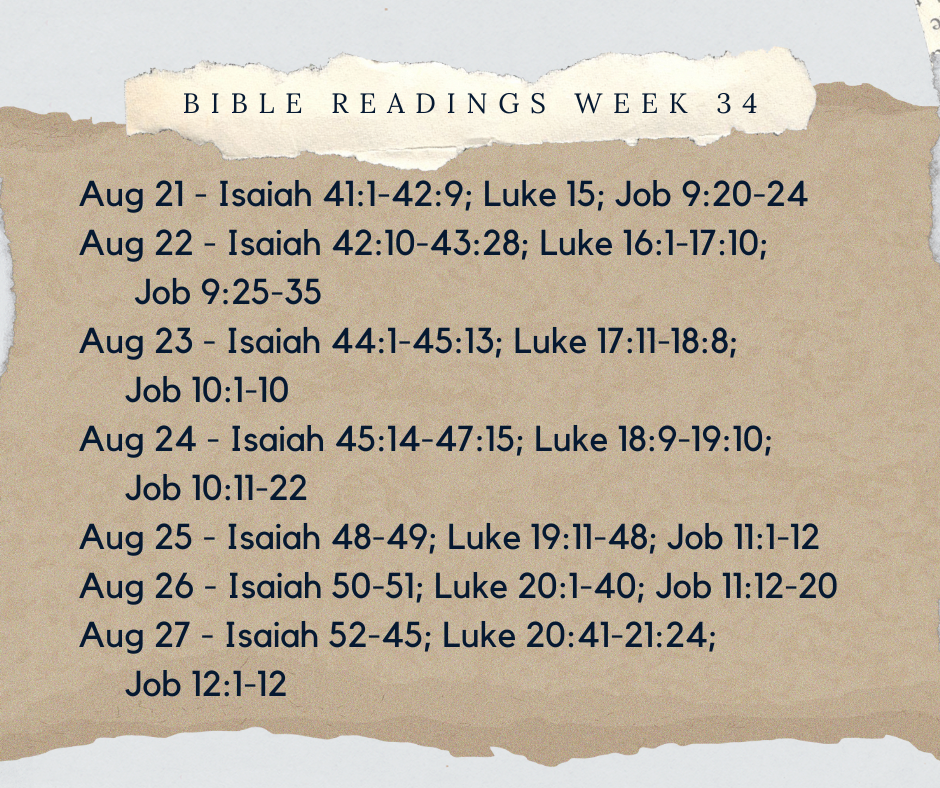 BIBLE READINGS WEEK 34
Aug 21 - Isaiah 41:1-42:9; Luke 15; Job 9:20-24
Aug 22 - Isaiah 42:10-43:28; Luke 16:1-17:10;
Job 9:25-35
Aug 23 - Isaiah 44:1-45:13; Luke 17:11-18:8;
Job 10:1-10
Aug 24 - Isaiah 45:14-47:15; Luke 18:9-19:10;
Job 10:11-22
Aug 25 - Isaiah 48-49; Luke 19:11-48; Job 11:1-12
Aug 26 - Isaiah 50-51; Luke 20:1-40; Job 11:12-20
Aug 27 - Isaiah 52-45; Luke 20:41-21:24;
Job 12:1-12